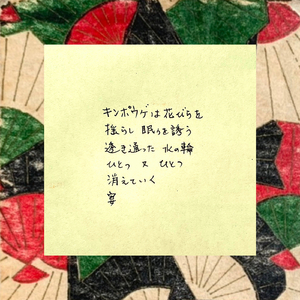 キンポウゲは花びらを
揺らし 眠りを誘う
逢き遠った 水の輪
ひとつ 又 ひとつ
消えていく
宴